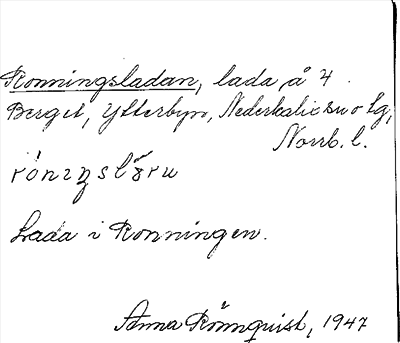 Ronningsladan, lada å 4
Berget, Ytterbyn, Nederkalix sn o lg,
Norrb. l.
Lada i Ronningen.
Anna Rönnquist, 1947